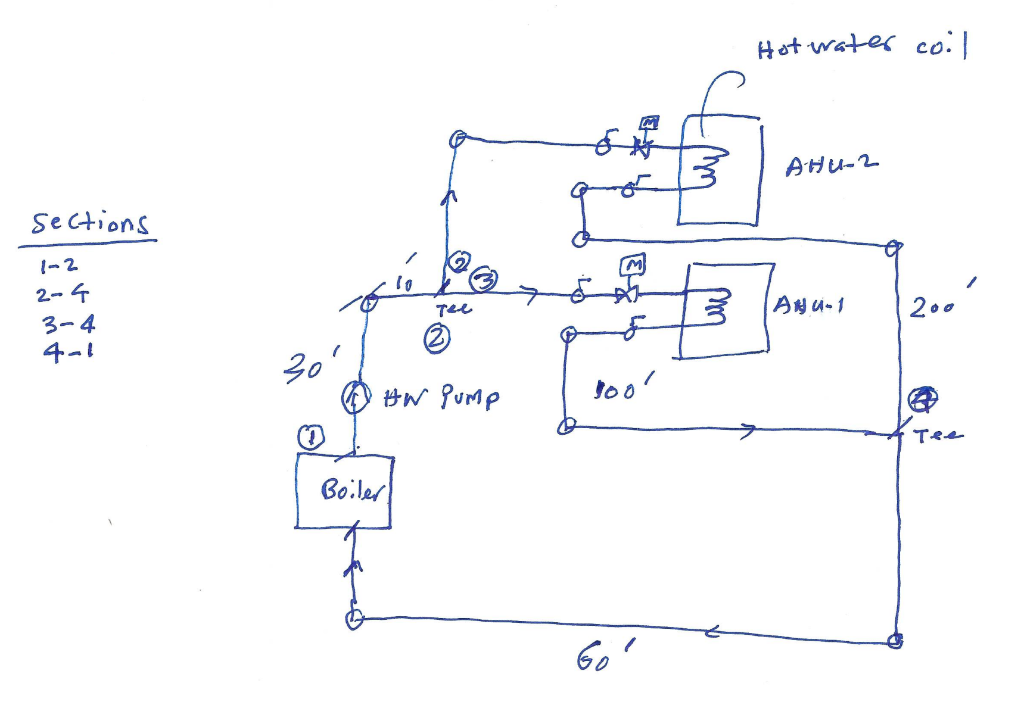 Hot water coil
M
AHU-2
Sections
1-2
2-4
3-4
4-1
10'
2
3
Tee
2
M
AHU-1
200'
30'
HW Pump
100'
4
Tee
1
Boiler
60'